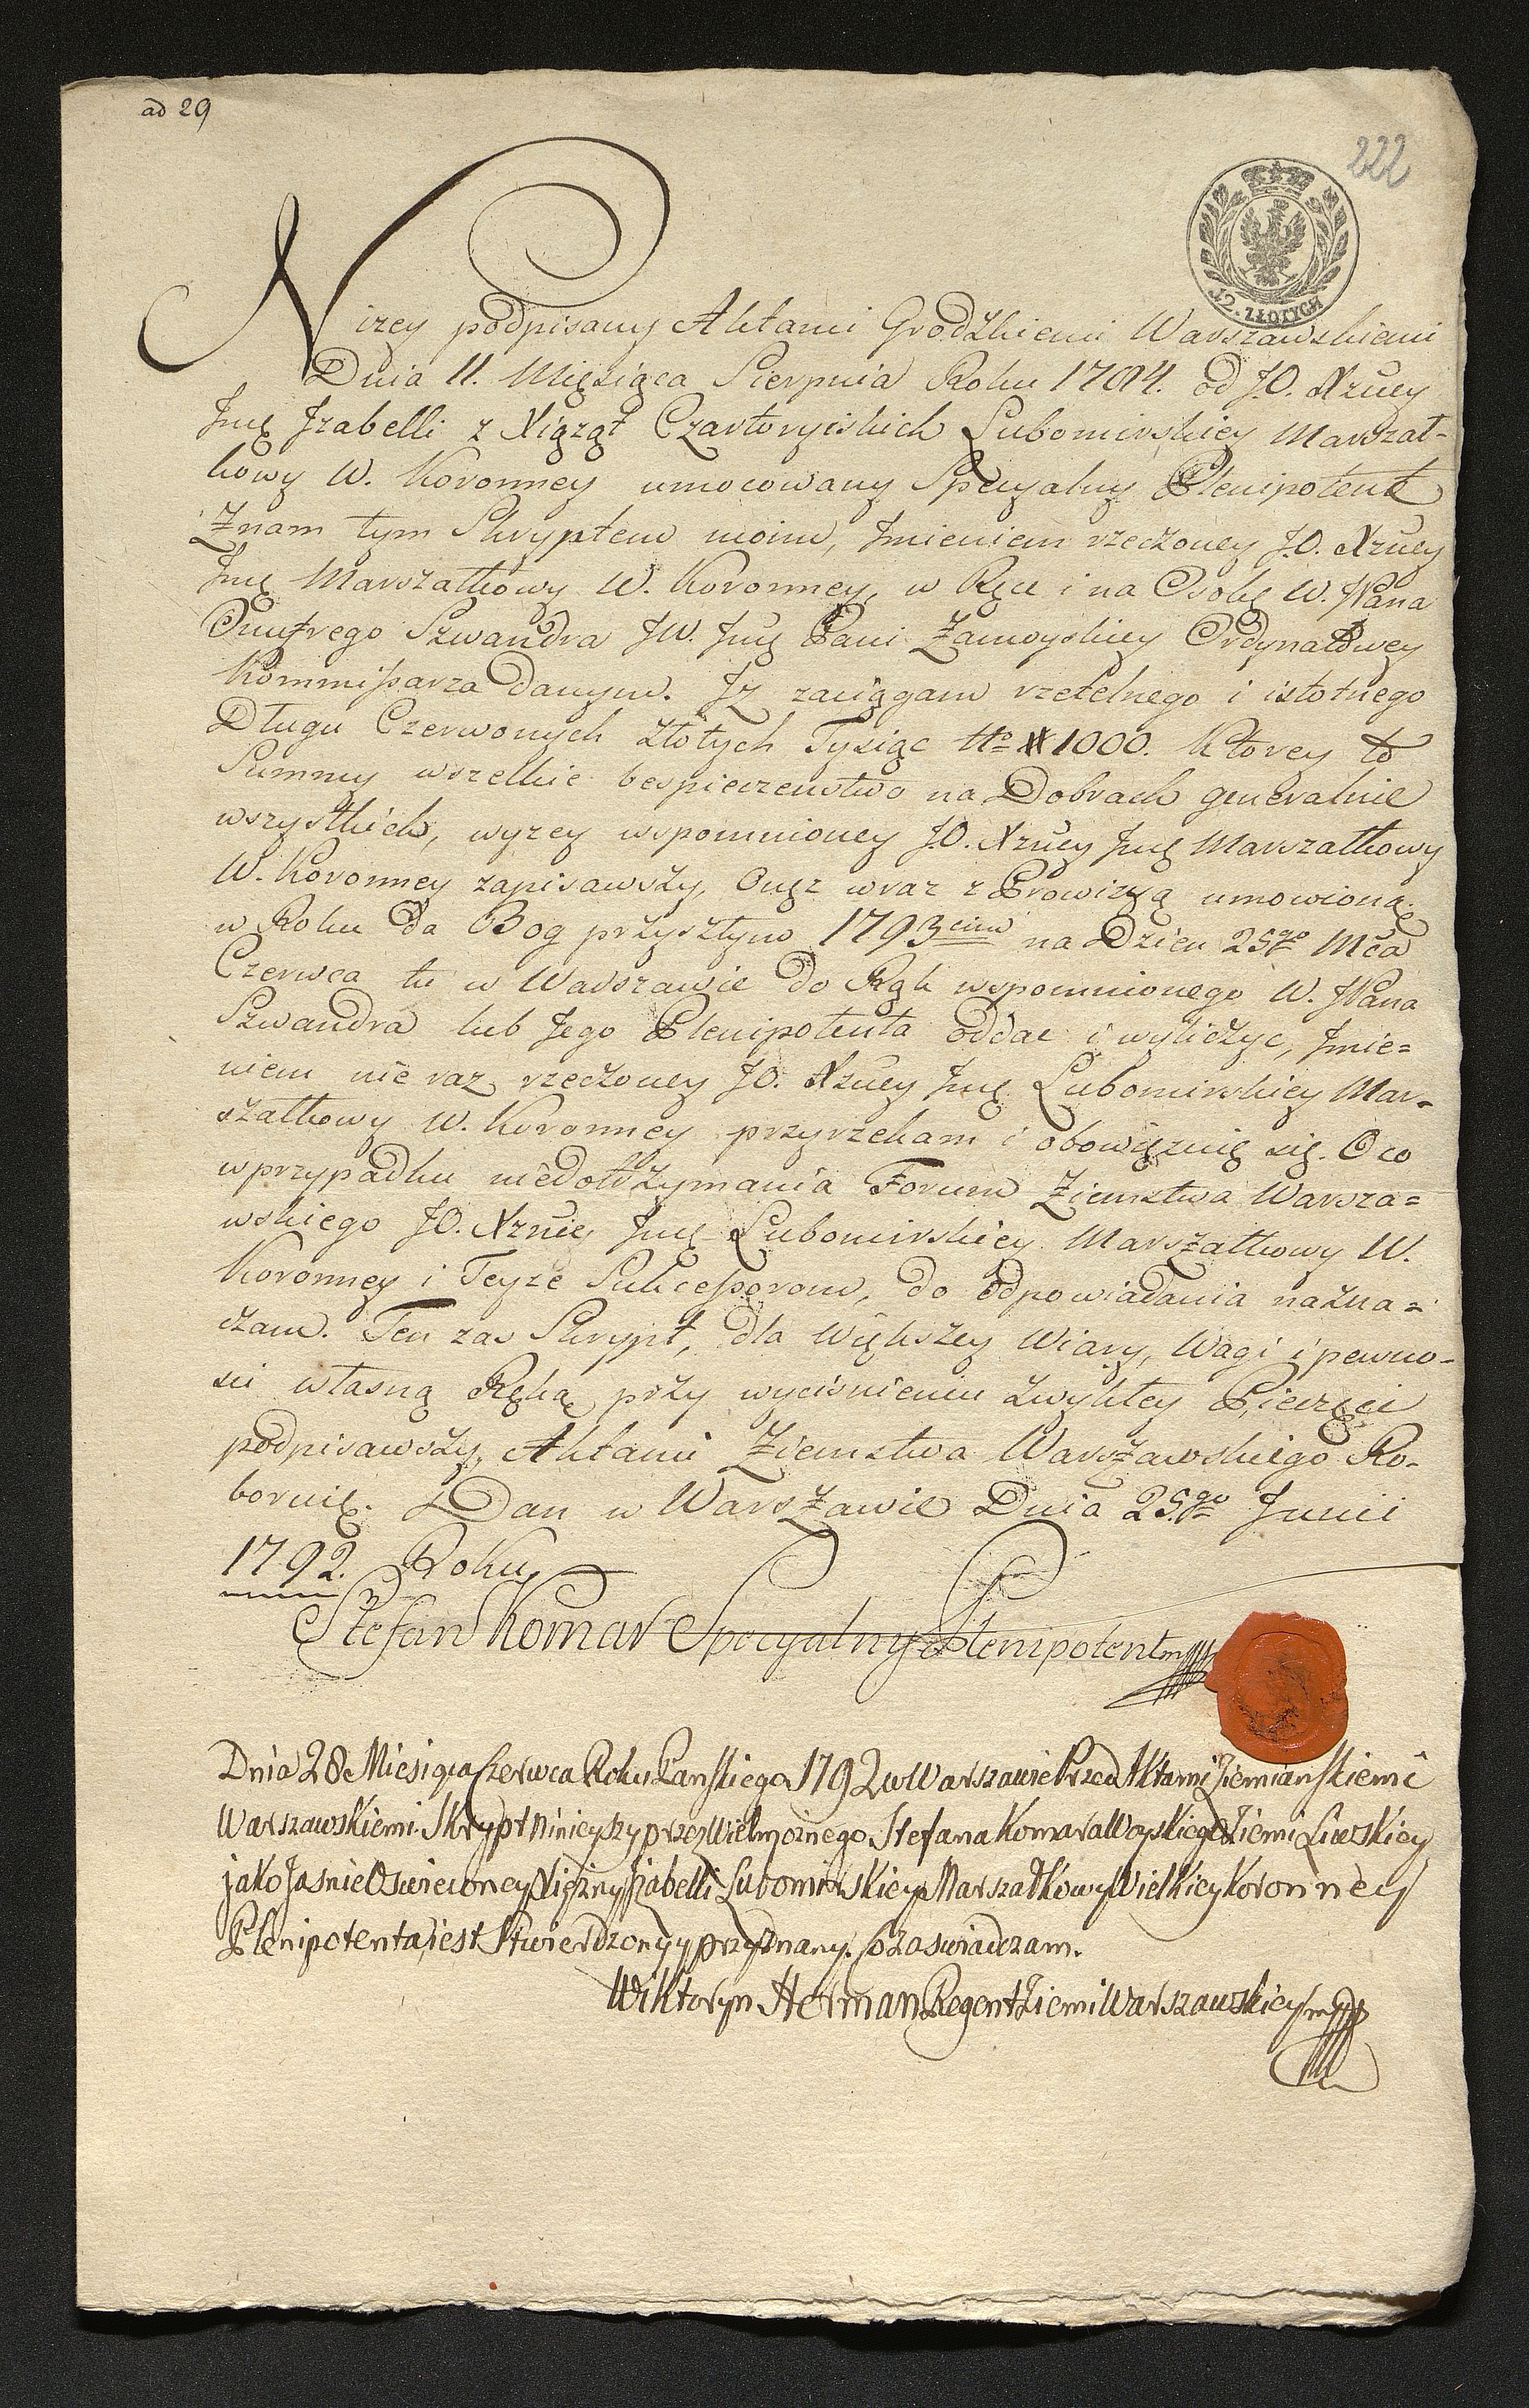 ad 29
222
12. ZŁOTYCH
Nizey podpisany Aktami Grodzkiemi Warszawskiemi
Dnia 11. Mięsiąca Sierpnia Roku 1784. od J.O. Xzney
Jmę Jzabelli z Xiążąt Czartoryiskich Lubomirskiey Marszał-
kowy W. Koronney umocowany Specyalny Plenipotent
Znam tym Skryptem moim, Jmieniem rzeczoney J.O. Xzney
Jmę Marszałkowy W. Koronney, w Ręce i na Osobę W. JPana
Onufrego Szwandra JW. Jmę Pani Zamoyskiey Ordynatowey
Kommissarza danym. Jż zaciągam rzetelnego i istotnego
Długu Czerwonych Złotych Tysiąc No # 1000. Ktorey to
Summy wszelkie bespieczenstwo na Dobrach generalnie
wszystkich, wyzey wspomnioney J.O. Xzney Jmę Marszałkowy
W. Koronney zapisawszy, Onęz wraz z Prowizyą umowioną
w Roku da Bog przyszłym 1793cim na Dzien 25go Mca
Czerwca tu w Warszawie do Rąk wspomnionego W. JPana
Szwandra lub Jego Plenipotenta oddac i wyliczyc, Jmie=
niem nie raz rzeczoney JO. Xzney Jmę Lubomirskiey Mar=
szałkowy W. Koronney przyrzekam i obowięzuię się. O co
w przypadku niedotrzymania Forum Ziemstwa Warsza=
wskiego JO. Xzney Jmę Lubomirskiey Marszałkowy W.
Koronney i Teyze Sukcessorom, do odpowiadania nazna=
czam. Ten zas Skrypt, dla Większey Wiary, Wagi i pewno-
sci własną Ręką przy wycisnieniu zwykłey Pieczęci
podpisawszy, Aktami Ziemstwa Warszawskiego Ro-
boruię. Dan w Warszawie Dnia 25.go Junii
1792. Roku
Stefan Komar Specyalny Plenipotent mpp
Dnia 28 Miesiąca Czerwca Roku Panskiego 1792 w Warszawie Przed Aktami Ziemianskiemi
Warszawskiemi Skrypt Ninieyszy przez Wielmoznego Stefana Komara Woyskiego Ziemi Liwskiey
jako Jasnie Oswieconey Xięzny Jzabelli Lubomirskiey Marszałkowy Wielkiey Koronney
Plenipotenta, iest Stwierdzony y przyznany. Co zaswiadczam.
Wiktoryn Herman Regent Ziemi Warszawskiey mpp